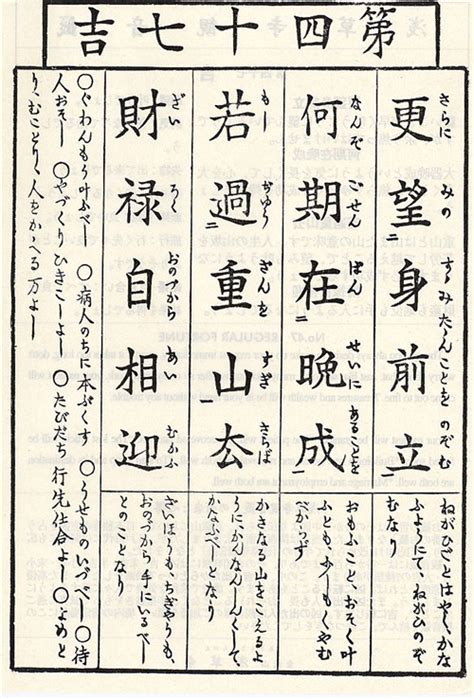 第四十七吉
更望身前立
さらに みの すゝみたんことを のぞむ
ねがひごとはやくかな
ふよーに、ねがひのぞ
むな
何期在晩成
なんぞごせん ばん せいに あることを
おもふことおそく叶
ふとも少しもやむ
べからず
若過二重山一去
もし ちゆうさんを すぎ さらば
かさなる山をこえるよ
かなふべしとなり
財禄自相迎
ざいろく おのづから あい むかふ
ざいほーもちぎやうも、
おのづから手にいるべし
とのことなり
〇ぐわんもう叶ふべし 〇病人のち本ぷくす 〇うせものいづべし 〇待
人おそし 〇やづくりひきこしよし 〇たびだち行先仕合よし 〇よめと
り、むことり、人をかゝへる万よし